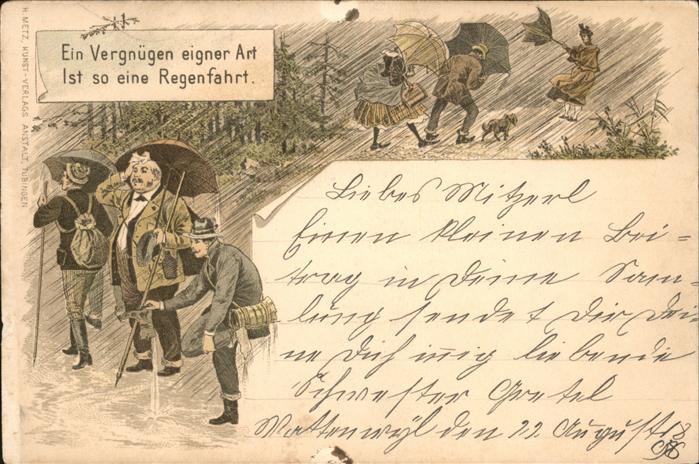 H. METZ, KUNST-VERLAGS ANSTALT, TÜBINGEN
Ein Vergnügen eigner Art
Ist so eine Regenfahrt.
Liebes Mitzerl
Einen kleinen Bei=
trag in Deine Sam=
lung sendet Dir Dei
ne Dich innig liebende
Schwester Gretel
Mattenwyl den 22. August
98